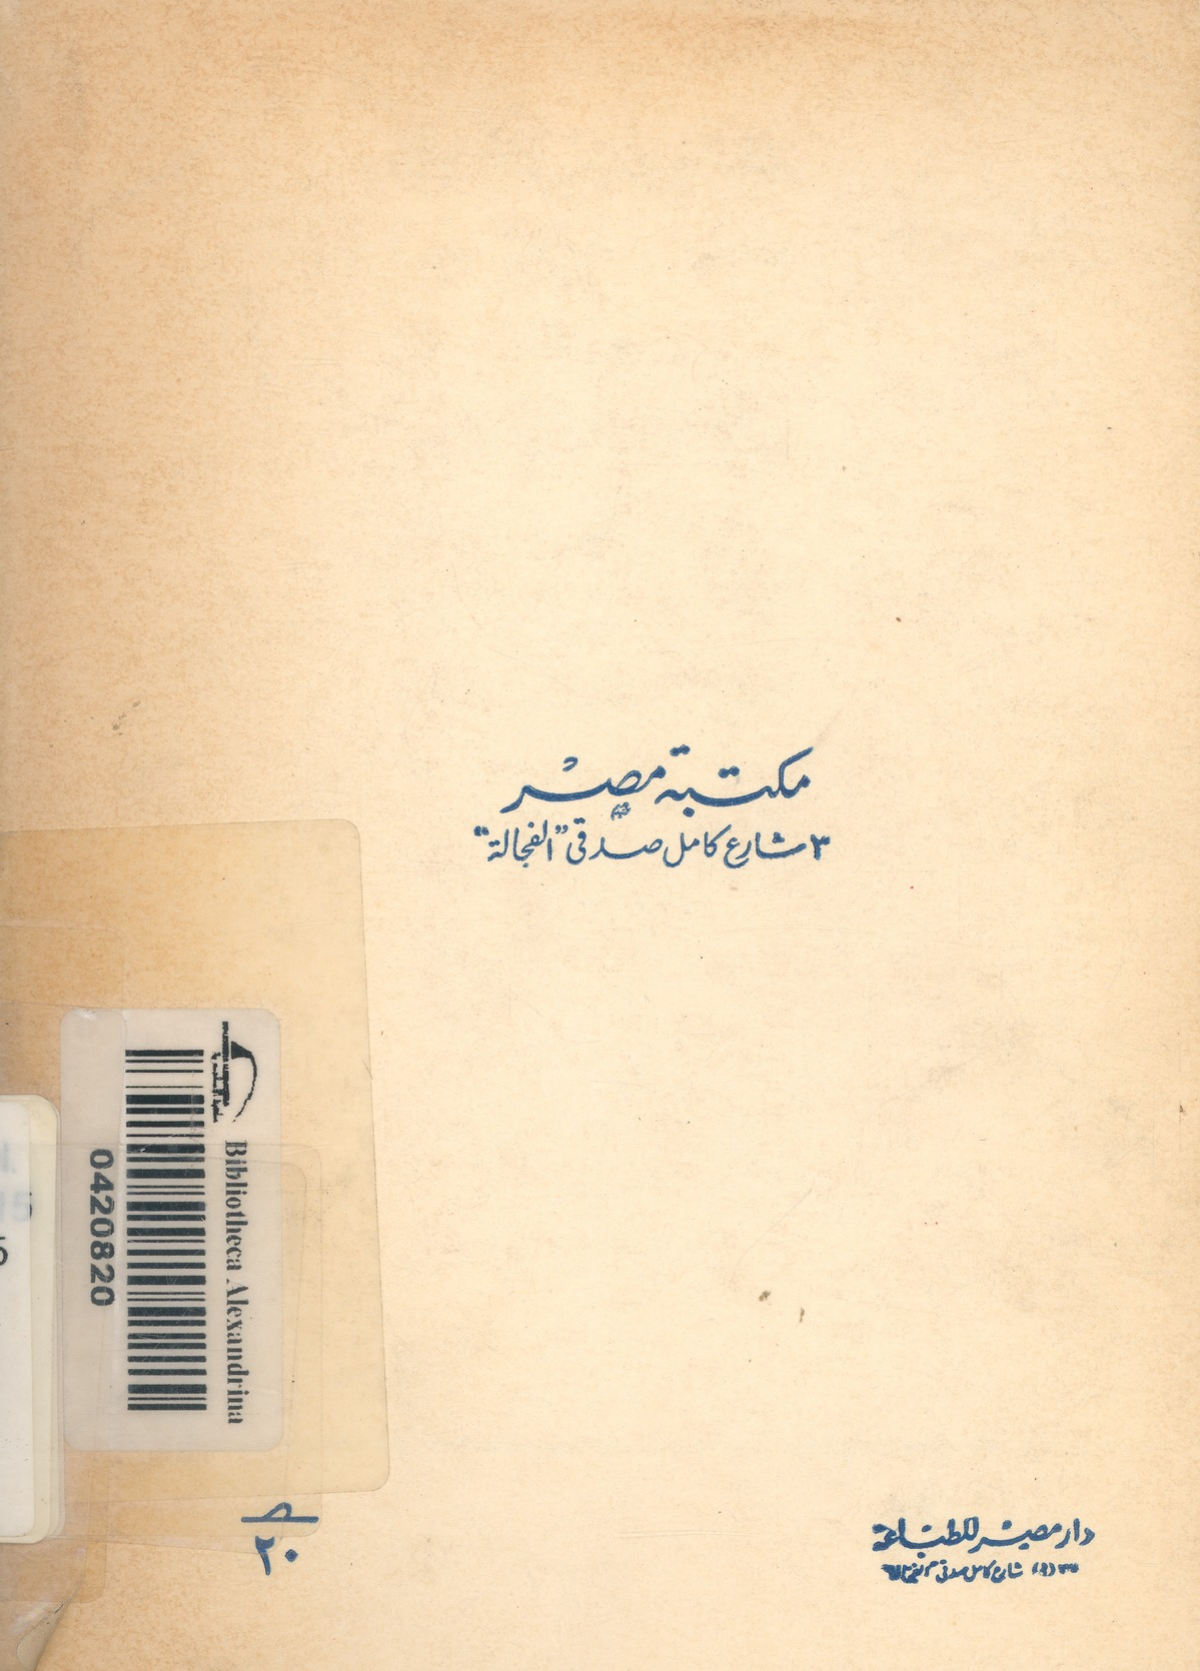 مكتبة مصر
٣ شارع كامل صدقى "الفجالة"
Bibliotheca Alexandrina
0420820
٢٠
دار مصر للطباعة
شارع كامل صدقى